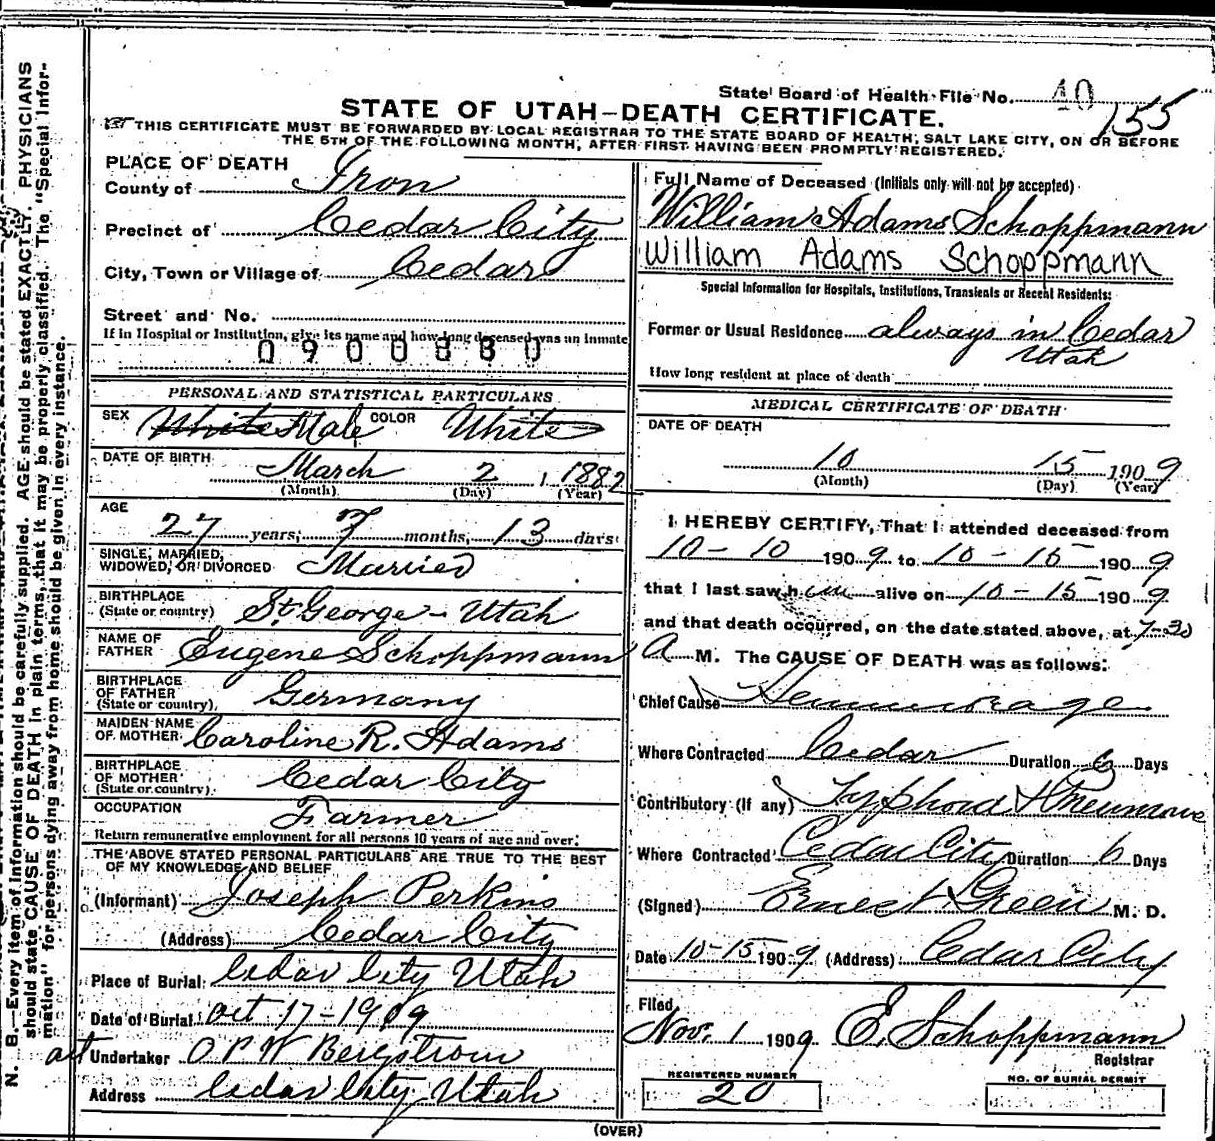 State Board of Health File No. 40
155
STATE OF UTAH—DEATH CERTIFICATE.
THIS CERTIFICATE MUST BE FORWARDED BY LOCAL REGISTRAR TO THE STATE BOARD OF HEALTH, SALT LAKE CITY, ON OR BEFORE
THE 5TH OF THE FOLLOWING MONTH, AFTER FIRST HAVING BEEN PROMPTLY REGISTERED.
PLACE OF DEATH
County of Iron
Precinct of Cedar City
City, Town or Village of Cedar
Street and No.
If in Hospital or Institution, give its name and how long deceased was an inmate
PERSONAL AND STATISTICAL PARTICULARS
SEX White Male COLOR White
DATE OF BIRTH March 2 1882
(Month) (Day) (Year)
AGE
27 years, 7 months, 13 days
SINGLE, MARRIED,
WIDOWED, OR DIVORCED Married
BIRTHPLACE
(State or country) St. George - Utah
NAME OF
FATHER Eugene Schoppmann
BIRTHPLACE
OF FATHER
(State or country) Germany
MAIDEN NAME
OF MOTHER Caroline R. Adams
BIRTHPLACE
OF MOTHER
(State or country) Cedar City
OCCUPATION Farmer
Return remunerative employment for all persons 10 years of age and over.
THE ABOVE STATED PERSONAL PARTICULARS ARE TRUE TO THE BEST
OF MY KNOWLEDGE AND BELIEF
(Informant) Joseph Perkins
(Address) Cedar City
Place of Burial Cedar City Utah
Date of Burial Oct 17-1909
Undertaker O P W Bergstrom
Address Cedar City Utah
Full Name of Deceased (Initials only will not be accepted)
William Adams Schoppmann
William Adams Schoppmann
Special Information for Hospitals, Institutions, Transients or Recent Residents:
Former or Usual Residence always in Cedar
Utah
How long resident at place of death
MEDICAL CERTIFICATE OF DEATH
DATE OF DEATH
10 15 1909
(Month) (Day) (Year)
I HEREBY CERTIFY, That I attended deceased from
10-10 1909 to 10-15 1909
that I last saw him alive on 10-15 1909
and that death occurred, on the date stated above, at 7-30
A M. The CAUSE OF DEATH was as follows:
Chief Cause Hemmorage
Where Contracted Cedar Duration 6 Days
Contributory (If any) Typhoid Pneumonia
Where Contracted Cedar City Duration 6 Days
(Signed) Ernest Green M. D.
Date 10-15 1909 (Address) Cedar City
Filed
Nov. 1 1909 E. Schoppmann
Registrar
REGISTERED NUMBER
20
NO. OF BURIAL PERMIT
(OVER)
N. B.—Every item of information should be carefully supplied. AGE should be stated EXACTLY. PHYSICIANS
should state CAUSE OF DEATH in plain terms, that it may be properly classified. The "Special Infor-
mation" for persons dying away from home should be given in every instance.